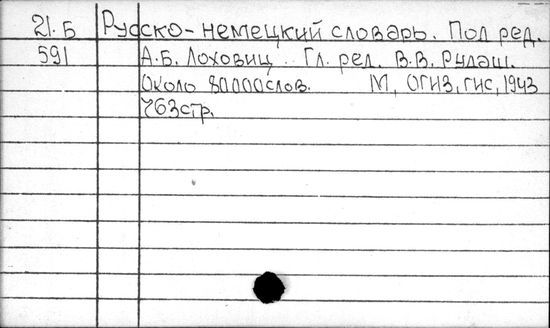 21. Б Русско-немецкий словарь. Пол ред.
591 А.Б. Лоховиц Гл. ред. В.В. Рудаш.
Около 80000слов. М, ОГИЗ, ГИС, 1943
763стр.